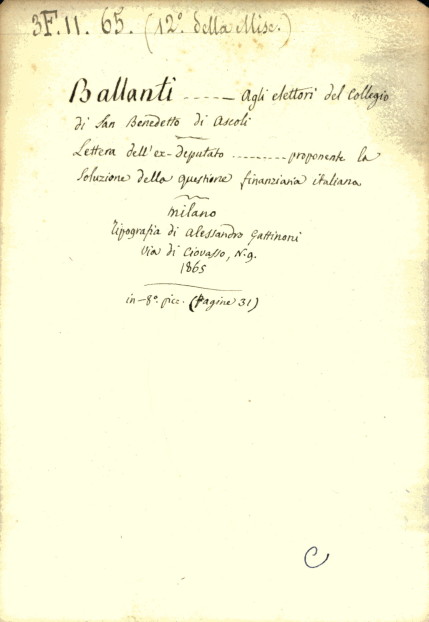 3F.11. 65. (12º. della Misc.)
Ballanti ----- Agli elettori del Collegio
di San Benedetto di Ascoli
Lettera dell'ex-deputato ......... proponente la
Soluzione della questione finanziaria italiana
Milano
Tipografia di Alessandro Gattinoni
Via di Ciovasso, N.9.
1865
in-8º. picc. (Pagine 31)
C